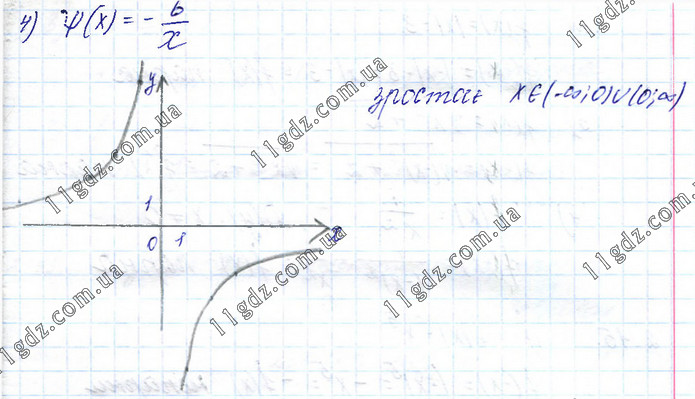 4) ψ(x) = - 6/x
y
зростає x∈(-∞;0)∪(0;∞)
1
0 1 x
11gdz.com.ua
11gdz.com.ua
11gdz.com.ua
11gdz.com.ua
11gdz.com.ua
11gdz.com.ua
11gdz.com.ua